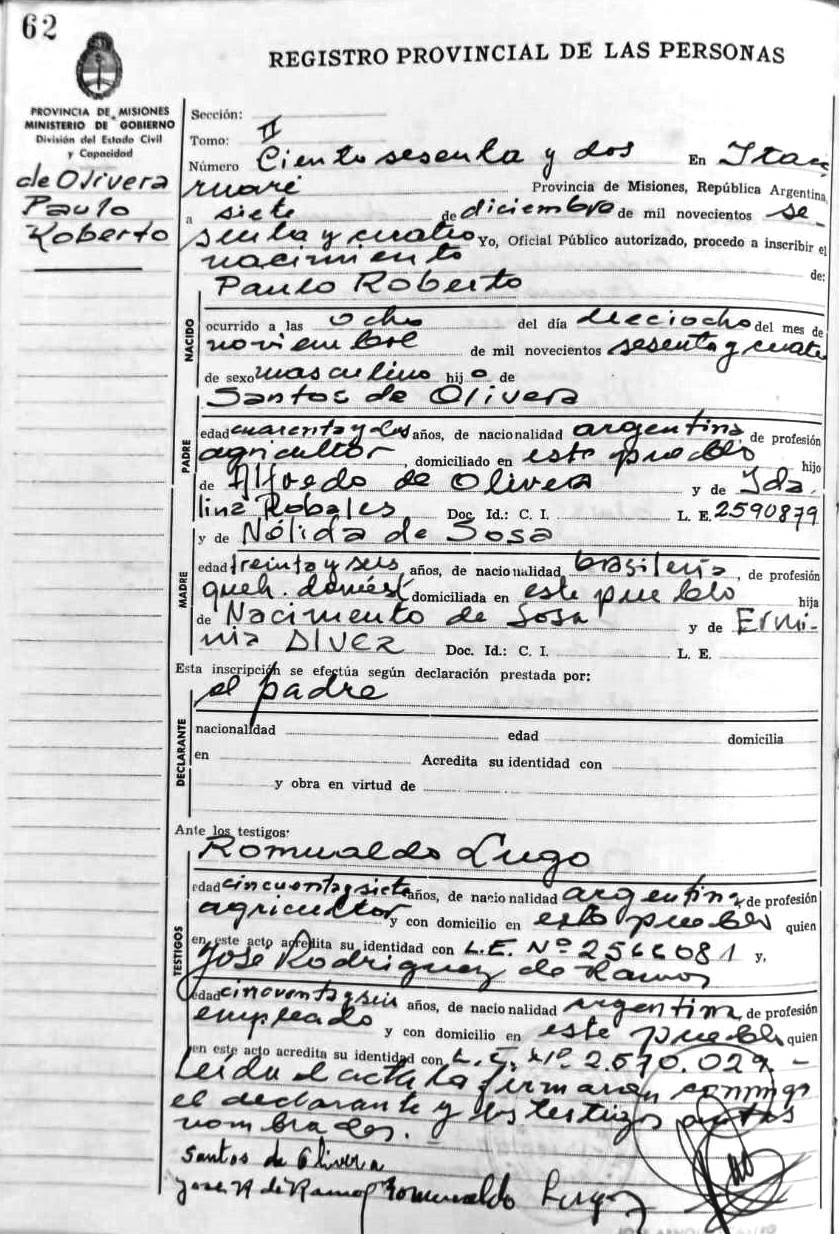 62
REGISTRO PROVINCIAL DE LAS PERSONAS
PROVINCIA DE MISIONES
MINISTERIO DE GOBIERNO
División del Estado Civil
y Capacidad
de Olivera
Paulo
Roberto
Sección:
Tomo: II
Número Ciento sesenta y dos En Itac
ruaré Provincia de Misiones, República Argentina,
a siete de diciembre de mil novecientos se-
senta y cuatro Yo, Oficial Público autorizado, procedo a inscribir el
nacimiento de:
Paulo Roberto
NACIDO
ocurrido a las ocho del día dieciocho del mes de
noviembre de mil novecientos sesenta y cuatro
de sexo masculino hijo de
Santos de Olivera
PADRE
edad cuarenta y dos años, de nacionalidad argentina, de profesión
agricultor, domiciliado en este pueblo hijo
de Alfredo de Olivera y de Ida-
lina Robales Doc. Id.: C. I. L. E. 2590879
y de Nélida de Sosa
MADRE
edad treinta y seis años, de nacionalidad brasileña, de profesión
queh. domést domiciliada en este pueblo hija
de Nacimento de Sosa y de Ermi-
nia Doc. Id.: C. I. L. E.
Esta inscripción se efectúa según declaración prestada por:
el padre
DECLARANTE
nacionalidad edad domicilia
en Acredita su identidad con
y obra en virtud de
Ante los testigos:
Romualdo Lugo
TESTIGOS
edad cincuenta y siete años, de nacionalidad argentina, de profesión
agricultor y con domicilio en esto pueblo quien
en este acto acredita su identidad con L.E. Nº 2566081 y,
José Rodriguez de Ramos
edad cincuenta y seis años, de nacionalidad argentina, de profesión
empleado y con domicilio en este pueblo quien
en este acto acredita su identidad con L.E. Nº 2.570.029 -
Leída el acta la firmaron conmigo
el declarante y los testigos antes
nombrados. -
Santos de Olivera
Jose R de Ramos Romualdo Lugo